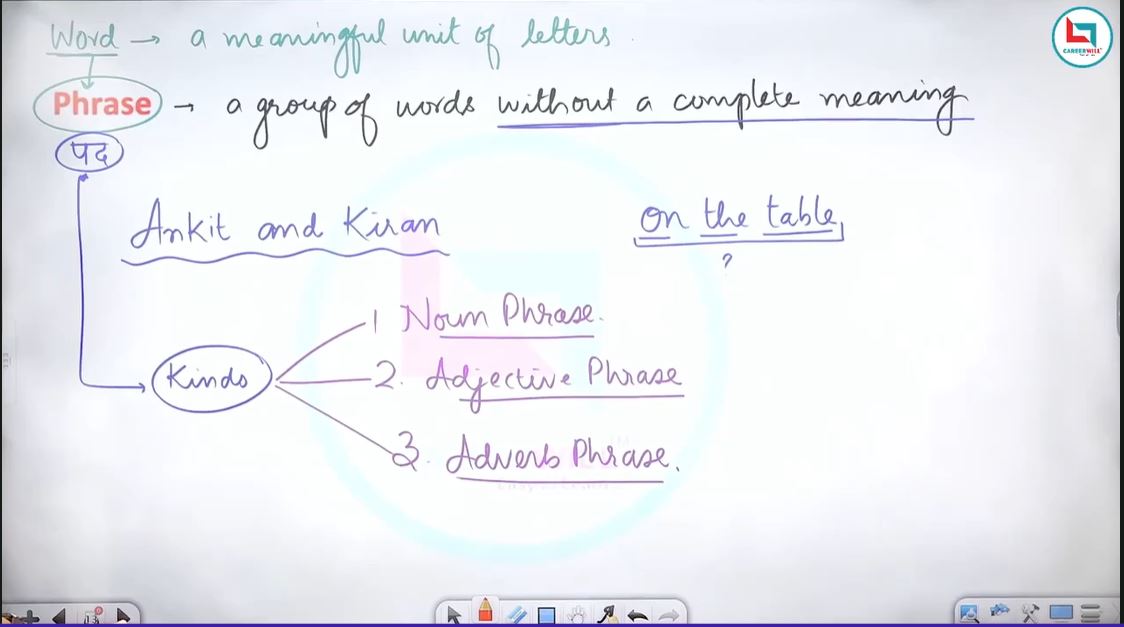 Word → a meaningful unit of letters.
Phrase → a group of words without a complete meaning
पद
Ankit and Kiran
On the table,
?
Kinds
1 Noun Phrase.
2. Adjective Phrase
3. Adverb Phrase.
CAREERWILL